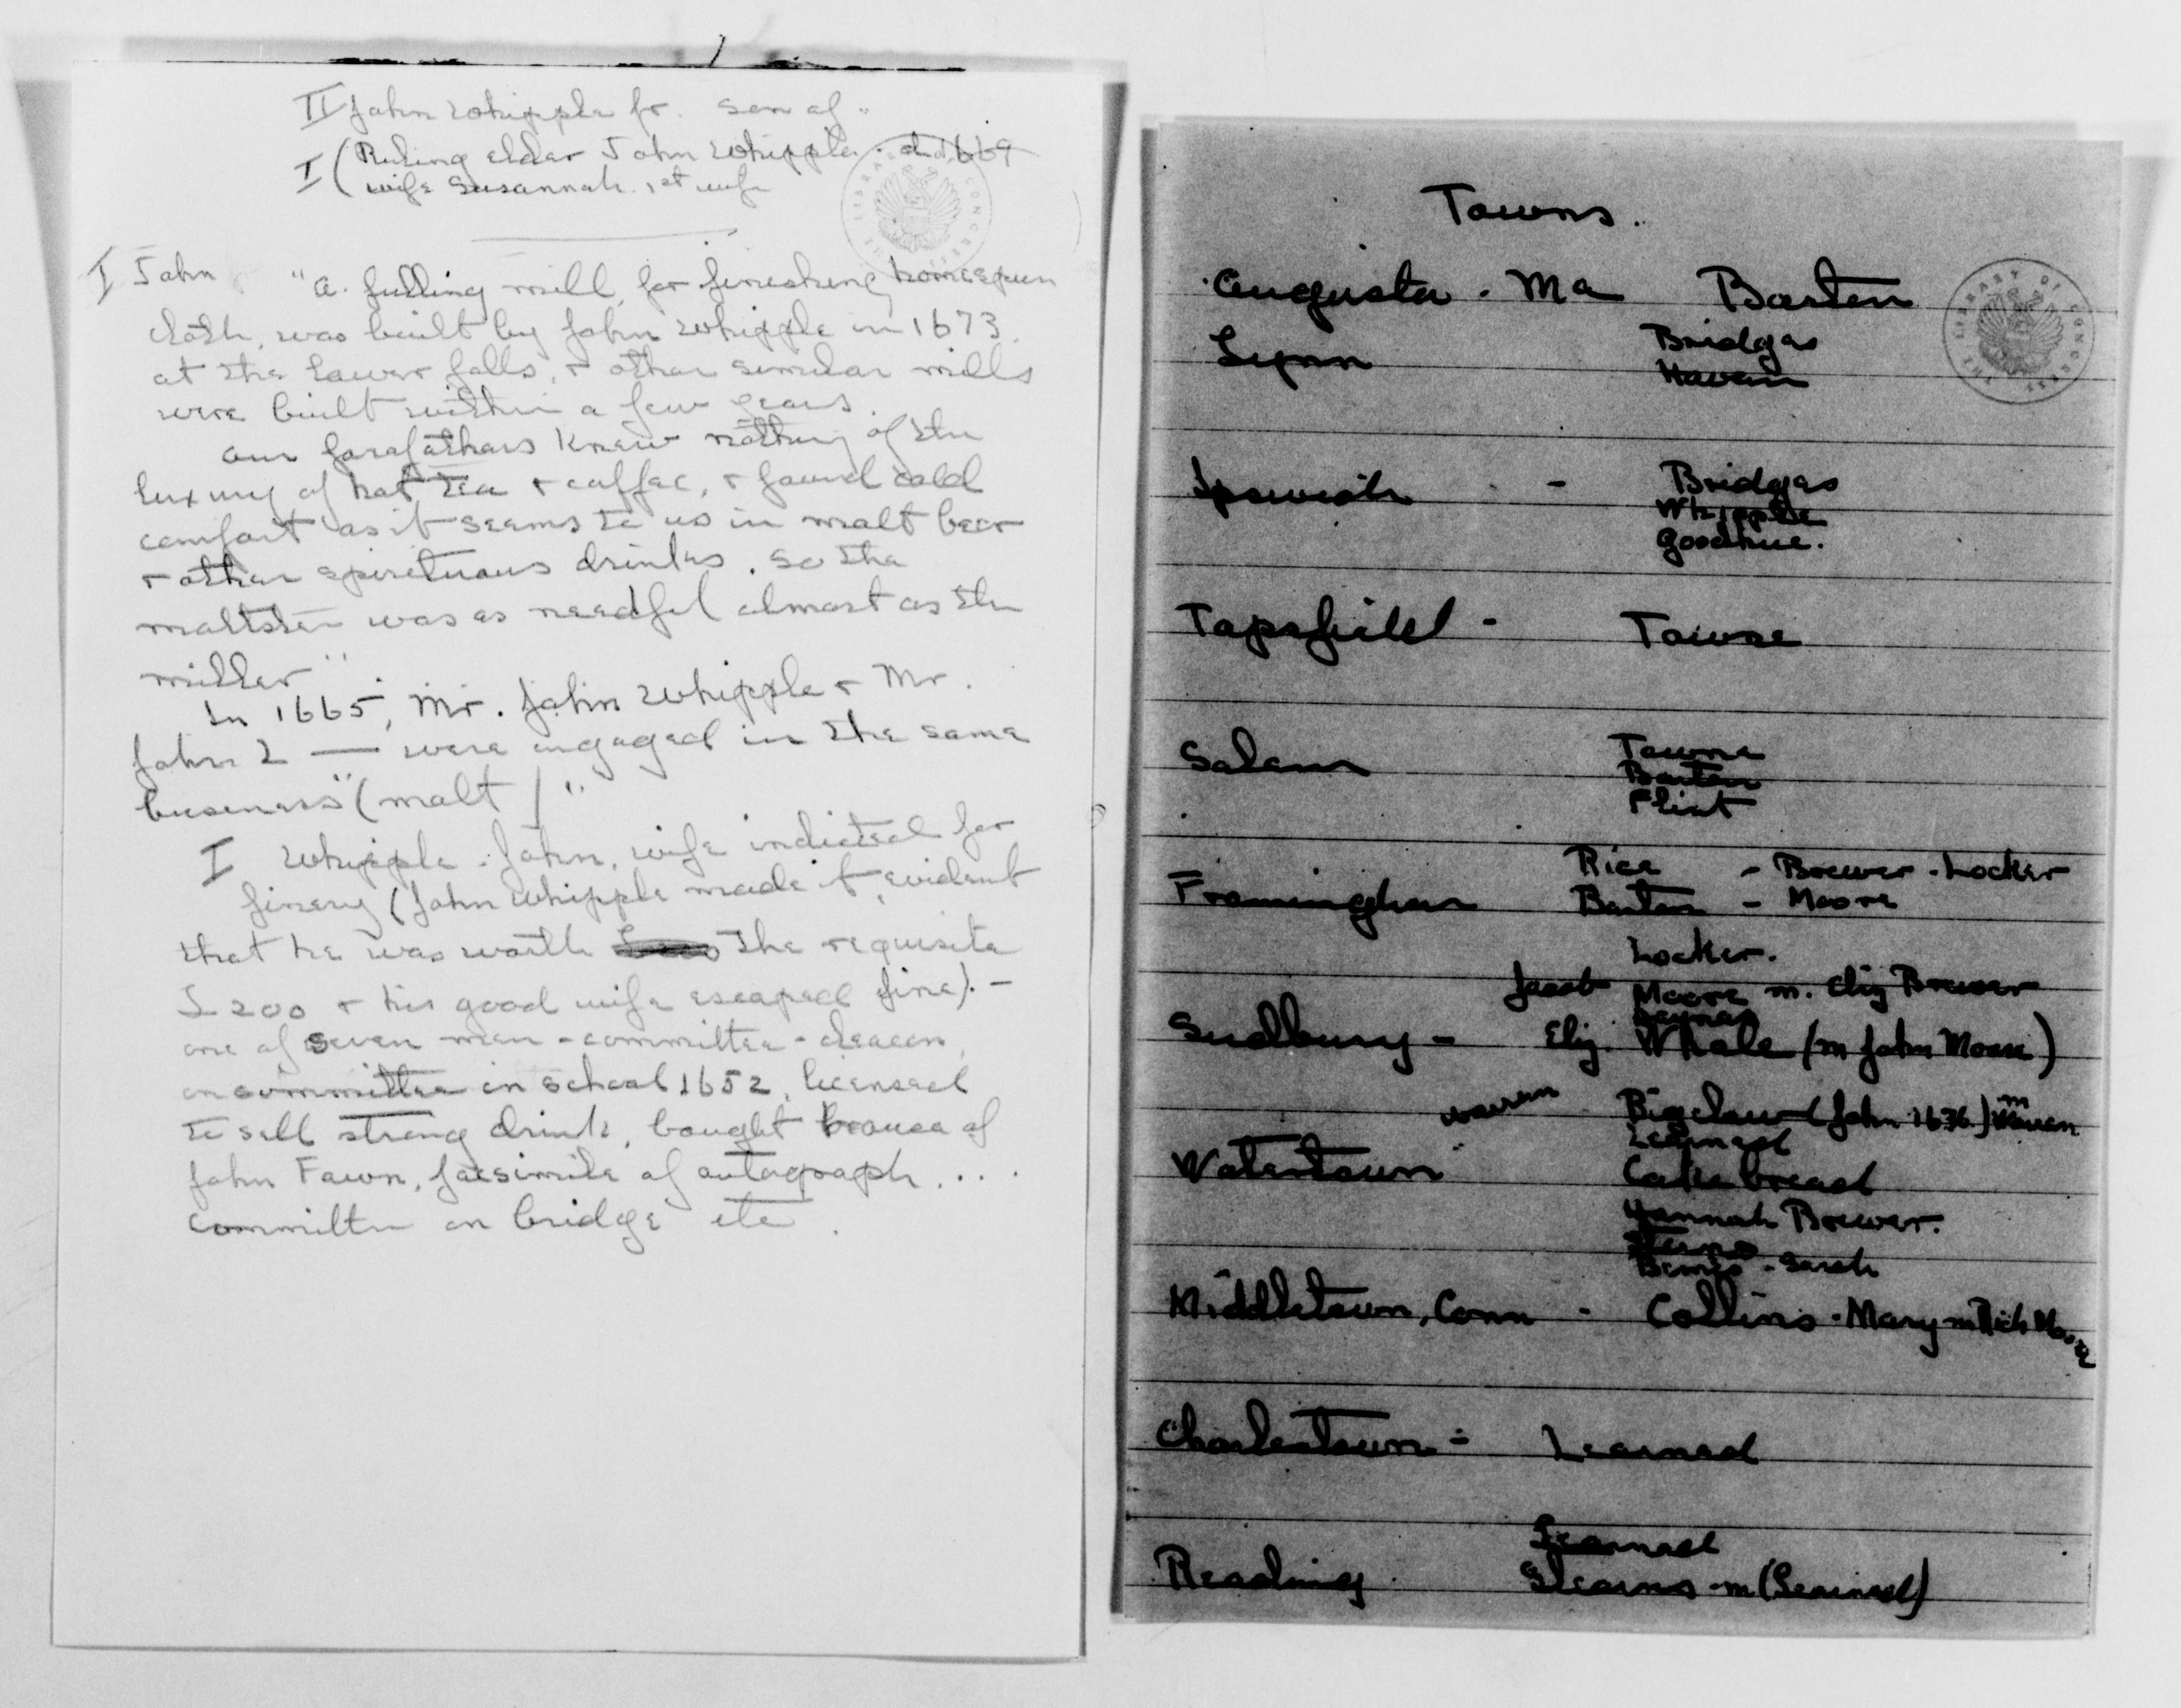 II John Whipple jr. son of
I (Ruling elder John Whipple. d. 1669
wife Susannah. 1st wife
I John "A. fulling mill, for finishing homespun
cloth, was built by John Whipple in 1673.
at the Lower falls, + other similar mills
were built within a few years.
Our forefathers knew nothing of the
luxury of hot tea + coffee, + found cold
comfort as it seems to us in malt beer
+ other spirituous drinks. So the
maltster was as needful almost as the
miller"
In 1665, Mr. John Whipple + Mr.
John L — were engaged in the same
business" (malt)"
I Whipple. John, wife indicted for
finery (John Whipple made it evident
that he was worth the requisite
£200 + his good wife escaped fine). -
one of seven men - committee - deacon,
on committee on school 1652, licensed
to sell strong drink, bought house of
John Fawn, facsimile of autograph....
committee on bridge etc.
THE LIBRARY OF CONGRESS
Towns.
Augusta. Ma Barton
Lynn Bridges
Haven
Ipswich - Bridges
Whipple
Goodhue.
Topsfield - Towne
Salem Towne
Barton
Flint
Framingham Rice - Brewer - Locker
Barton - Moore
Locker.
Jacob Moore m. Eliz Brewer
Haynes
Sudbury - Eliz. Whale (m John Moore)
Warren Bigelow (John 1636.) m Warren
Learned
Watertown Cakebread
Hannah Brewer.
Stearns
Bemis - Sarah
Middletown, Conn - Collins - Mary m Rich Moore
Charlestown - Learned
Learned
Reading Stearns - m (Learned)
THE LIBRARY OF CONGRESS